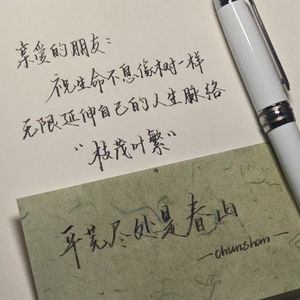 亲爱的朋友：
祝生命不息像树一样
无限延伸自己的人生脉络
“枝茂叶繁”
平芜尽处是春山
—chunshan—